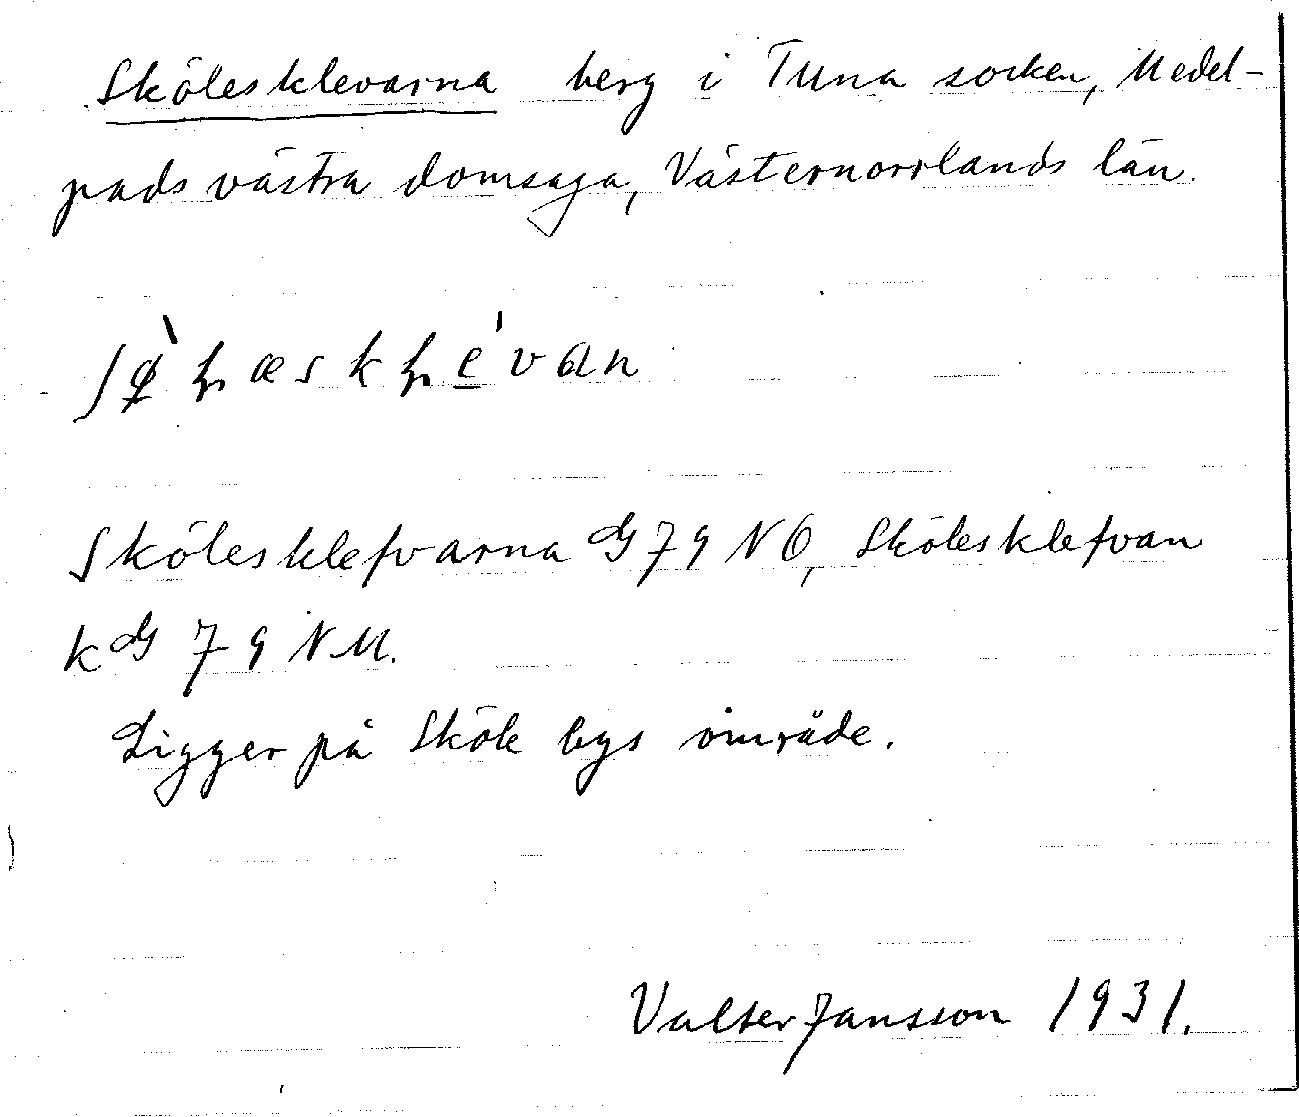 Skölesklevarna berg i Tuna socken, Medel-
pads västra domsaga, Västernorrlands län.
Skölesklefvarna G 79 NO, Skölesklefvan
kG 79 NM.
Ligger på Sköle bys område.
Valter Jansson 1931.